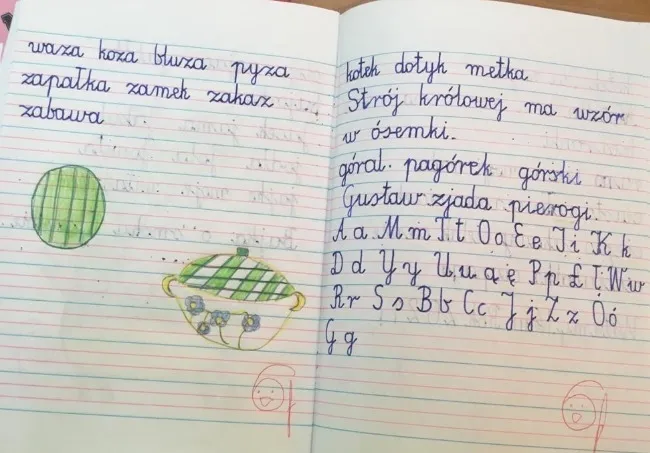 waza koza bluza pyza
zapałka zamek zakaz
zabawa
kołek dotyk metka
Strój królowej ma wzór
w ósemki.
góral. pagórek górski
Gustaw zjada pierogi.
A a M m T t O o E e I i K k
D d Y y U u ą ę P p Ł ł W w
R r S s B b C c J j Z z Ó ó
G g